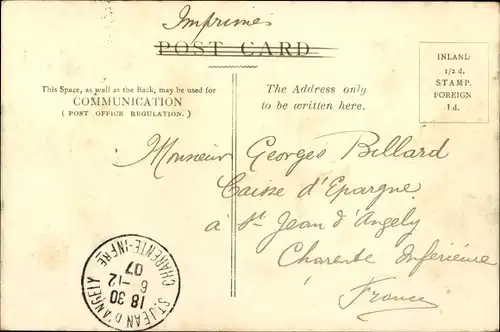 Imprimés
POST CARD
This Space, as well as the Back, may be used for
COMMUNICATION
( POST OFFICE REGULATION. )
The Address only
to be written here.
INLAND
1/2 d.
STAMP.
FOREIGN
1 d.
Monsieur Georges Billard
Caisse d'Epargne
à St Jean d'Angely
Charente Inférieure
France
ST JEAN D'ANGELY
18 30
6 -12
07
CHARENTE-INFRE